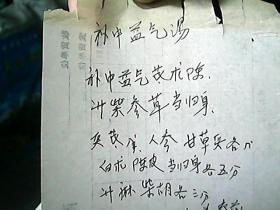 补中益气汤
补中益气芪术陈
升柴参草当归身
炙芪 人参 甘草炙各
白术 陈皮 当归身各五分
升麻 柴胡各三分